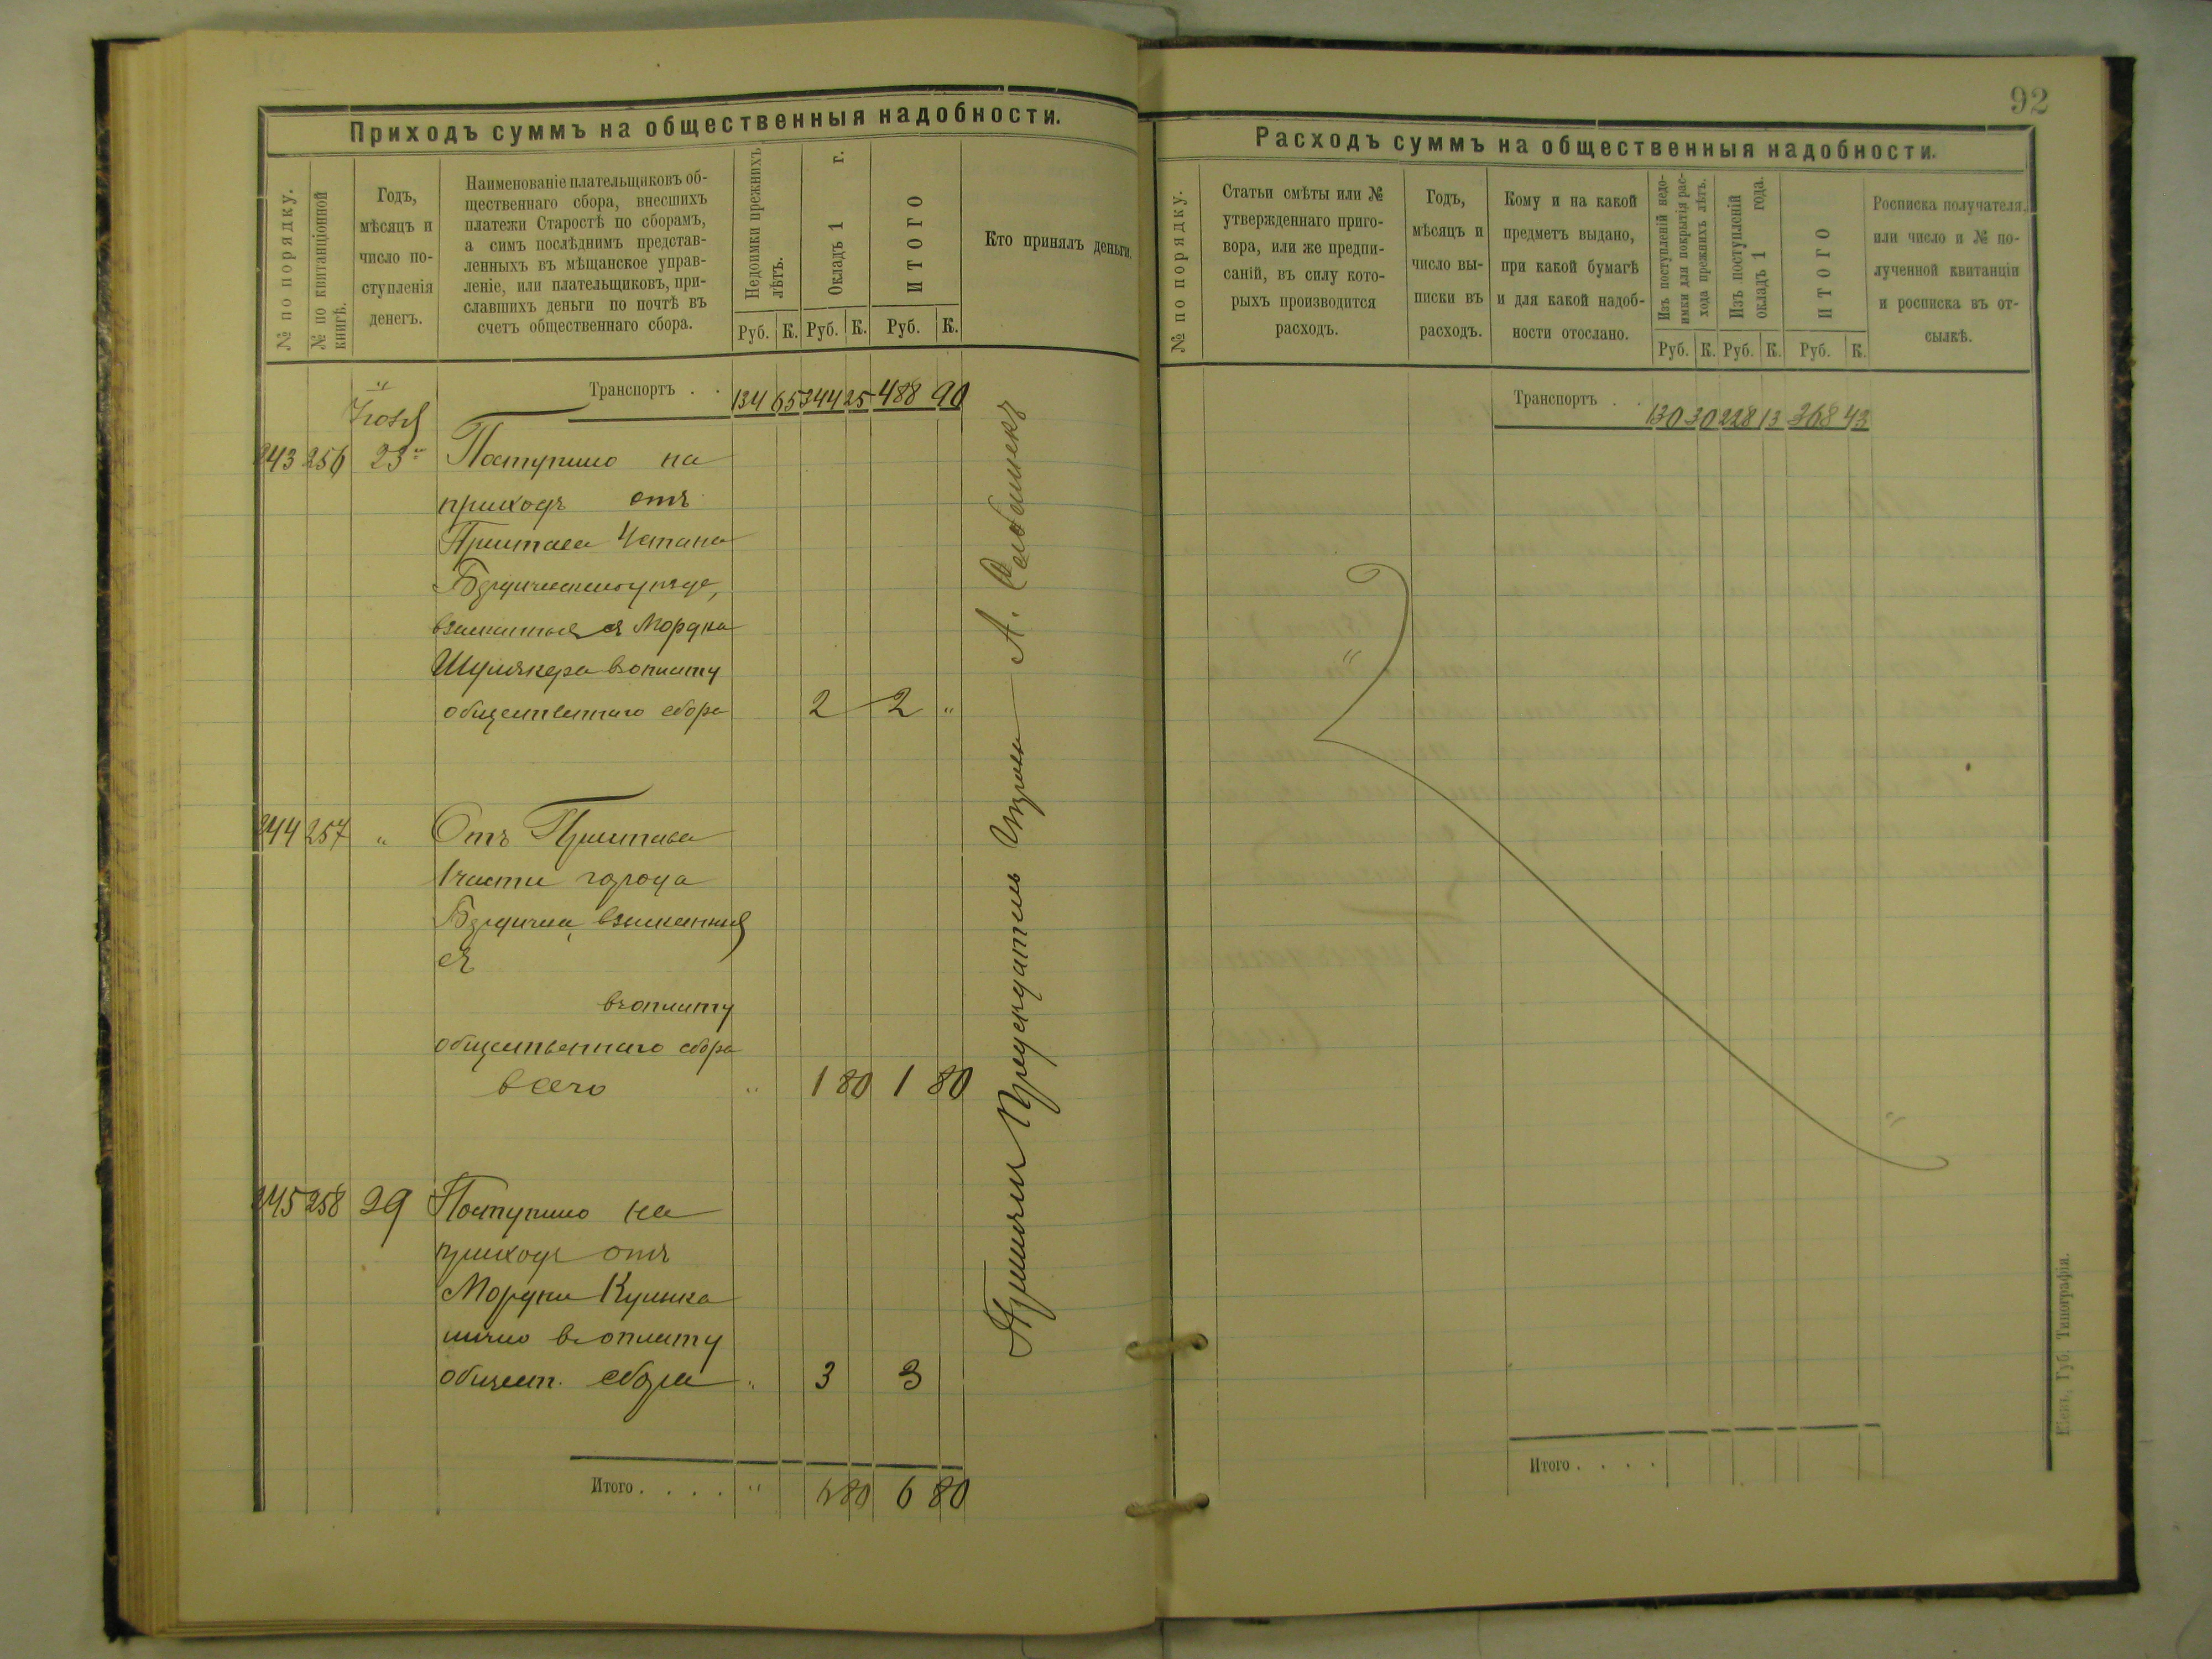 Приходъ суммъ на общественныя надобности.
№ по порядку.
№ по квитанціонной
книгѣ.
Годъ,
мѣсяцъ и
число по-
ступленія
денегъ.
Наименованіе плательщиковъ об-
щественнаго сбора, внесшихъ
платежи Старостѣ по сборамъ,
а симъ послѣднимъ представ-
ленныхъ въ мѣщанское управ-
леніе, или плательщиковъ, при-
славшихъ деньги по почтѣ въ
счетъ общественнаго сбора.
Недоимки прежнихъ
лѣтъ.
Окладъ 1 г.
ИТОГО
Руб. К. Руб. К. Руб. К.
Кто принялъ деньги.
Транспортъ . . 134 65 344 25 488 90
243 256 23 Поступило на
приходъ отъ
Пристава Істана
взысканныя съ Мордка
въ оплату
общественнаго сбора 2 2 "
244 257 " Отъ Пристава
1 части города
Бердичева, взысканныя
съ
въ оплату
общественнаго сбора
всего " 1 80 1 80
245 258 29 Поступило на
приходъ отъ
Мордки
лично въ оплату
общест. сбора " 3 3
Итого . . . . " 6 80 6 80
Принялъ Предсѣдатель
92
Расходъ суммъ на общественныя надобности.
№ по порядку.
Статьи смѣты или №
утвержденнаго приго-
вора, или же предпи-
саній, въ силу кото-
рыхъ производится
расходъ.
Годъ,
мѣсяцъ и
число вы-
писки въ
расходъ.
Кому и на какой
предметъ выдано,
при какой бумагѣ
и для какой надоб-
ности отослано.
Изъ поступленій недо-
имки для покрытія рас-
хода прежнихъ лѣтъ.
Изъ поступленій
окладъ 1 года.
ИТОГО
Руб. К. Руб. К. Руб. К.
Росписка получателя,
или число и № по-
лученной квитанціи
и росписка въ от-
сылкѣ.
Транспортъ . . 130 30 228 13 368 43
Итого . . . .
Кіевъ, Губ. Типографія.